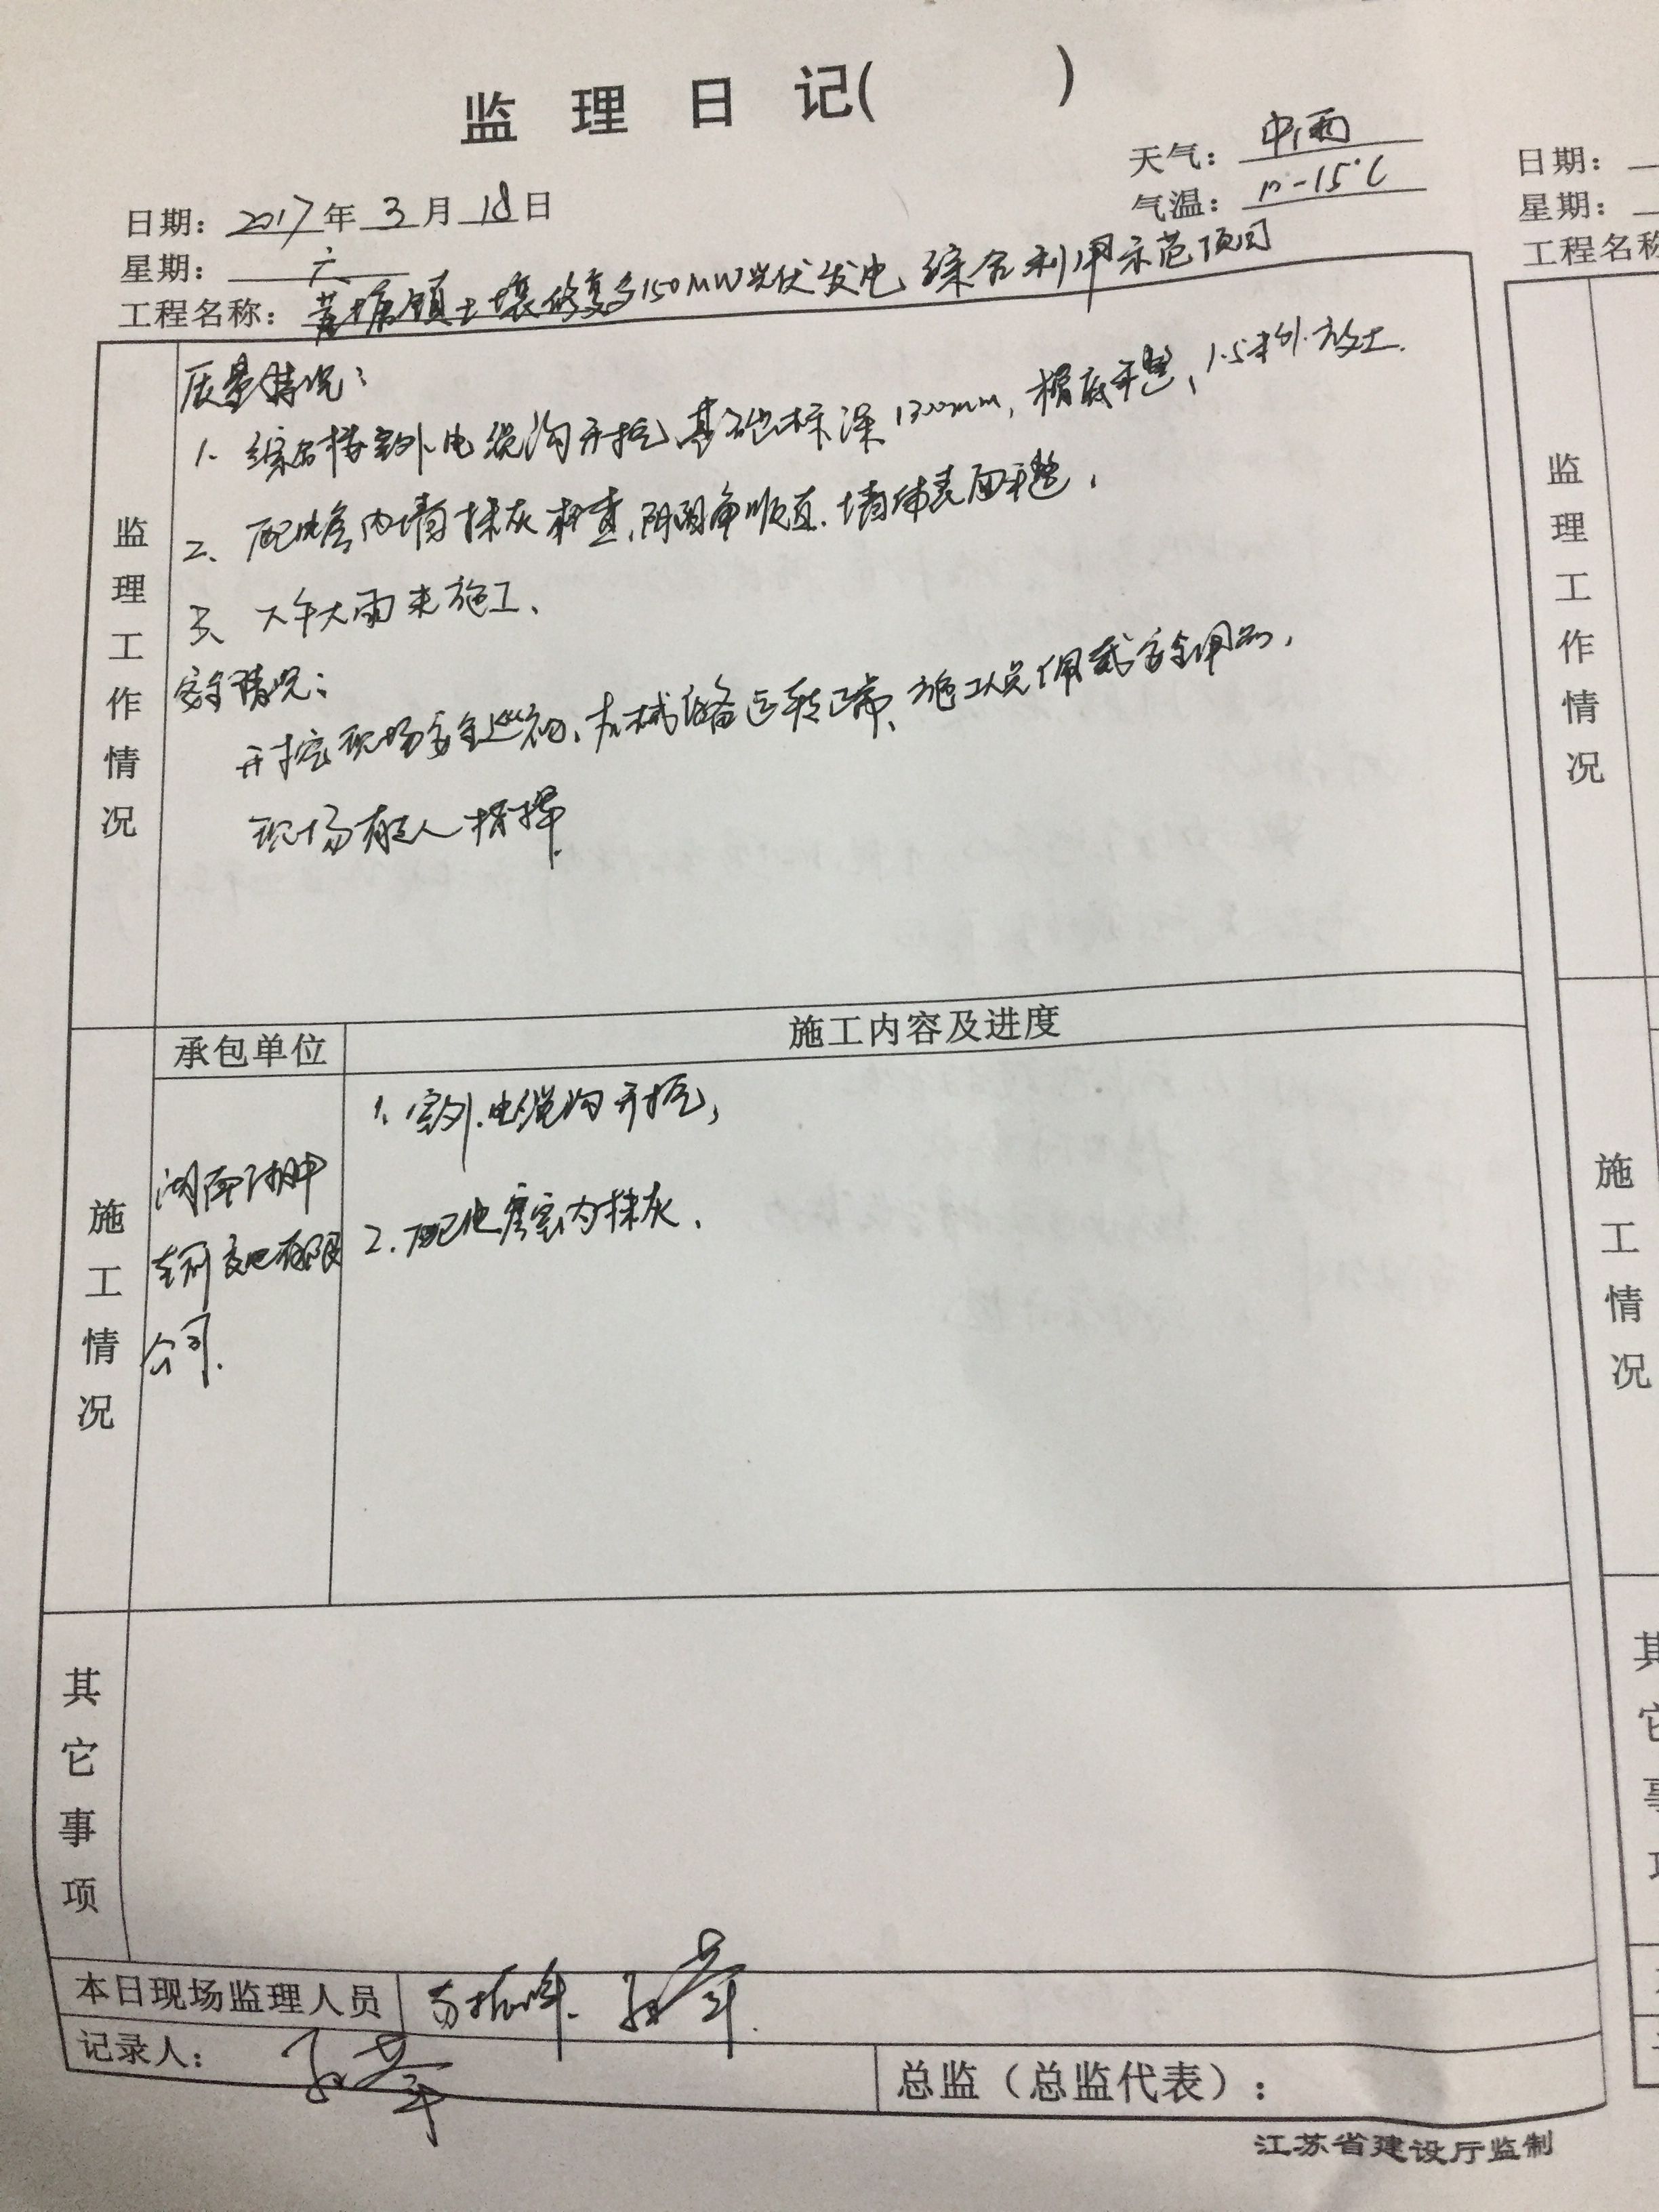 监理日记( )
天气：中雨
日期：2017年3月18日
气温：10-15℃
星期：六
工程名称：黄塘镇土壤修复150MW光伏发电综合利用示范项目
监理工作情况
质量情况：
1、综合楼室外电缆沟开挖、基础标深1300mm，槽底平整，1.5米外放土.
2、配电房内墙抹灰检查，阴阳角顺直.墙体表面平整，
3、下午大雨未施工、
安全情况：
开挖现场安全巡视、机械设备运转正常、施工人员佩戴安全用品，
现场有专人指挥.
施工情况
承包单位
施工内容及进度
1、室外电缆沟开挖，
湖南
有限
公司.
2.配电房室内抹灰.
其它事项
本日现场监理人员
记录人：
总监（总监代表）：
江苏省建设厅监制
日期：
星期：
工程名称
监理工作情况
施工情况